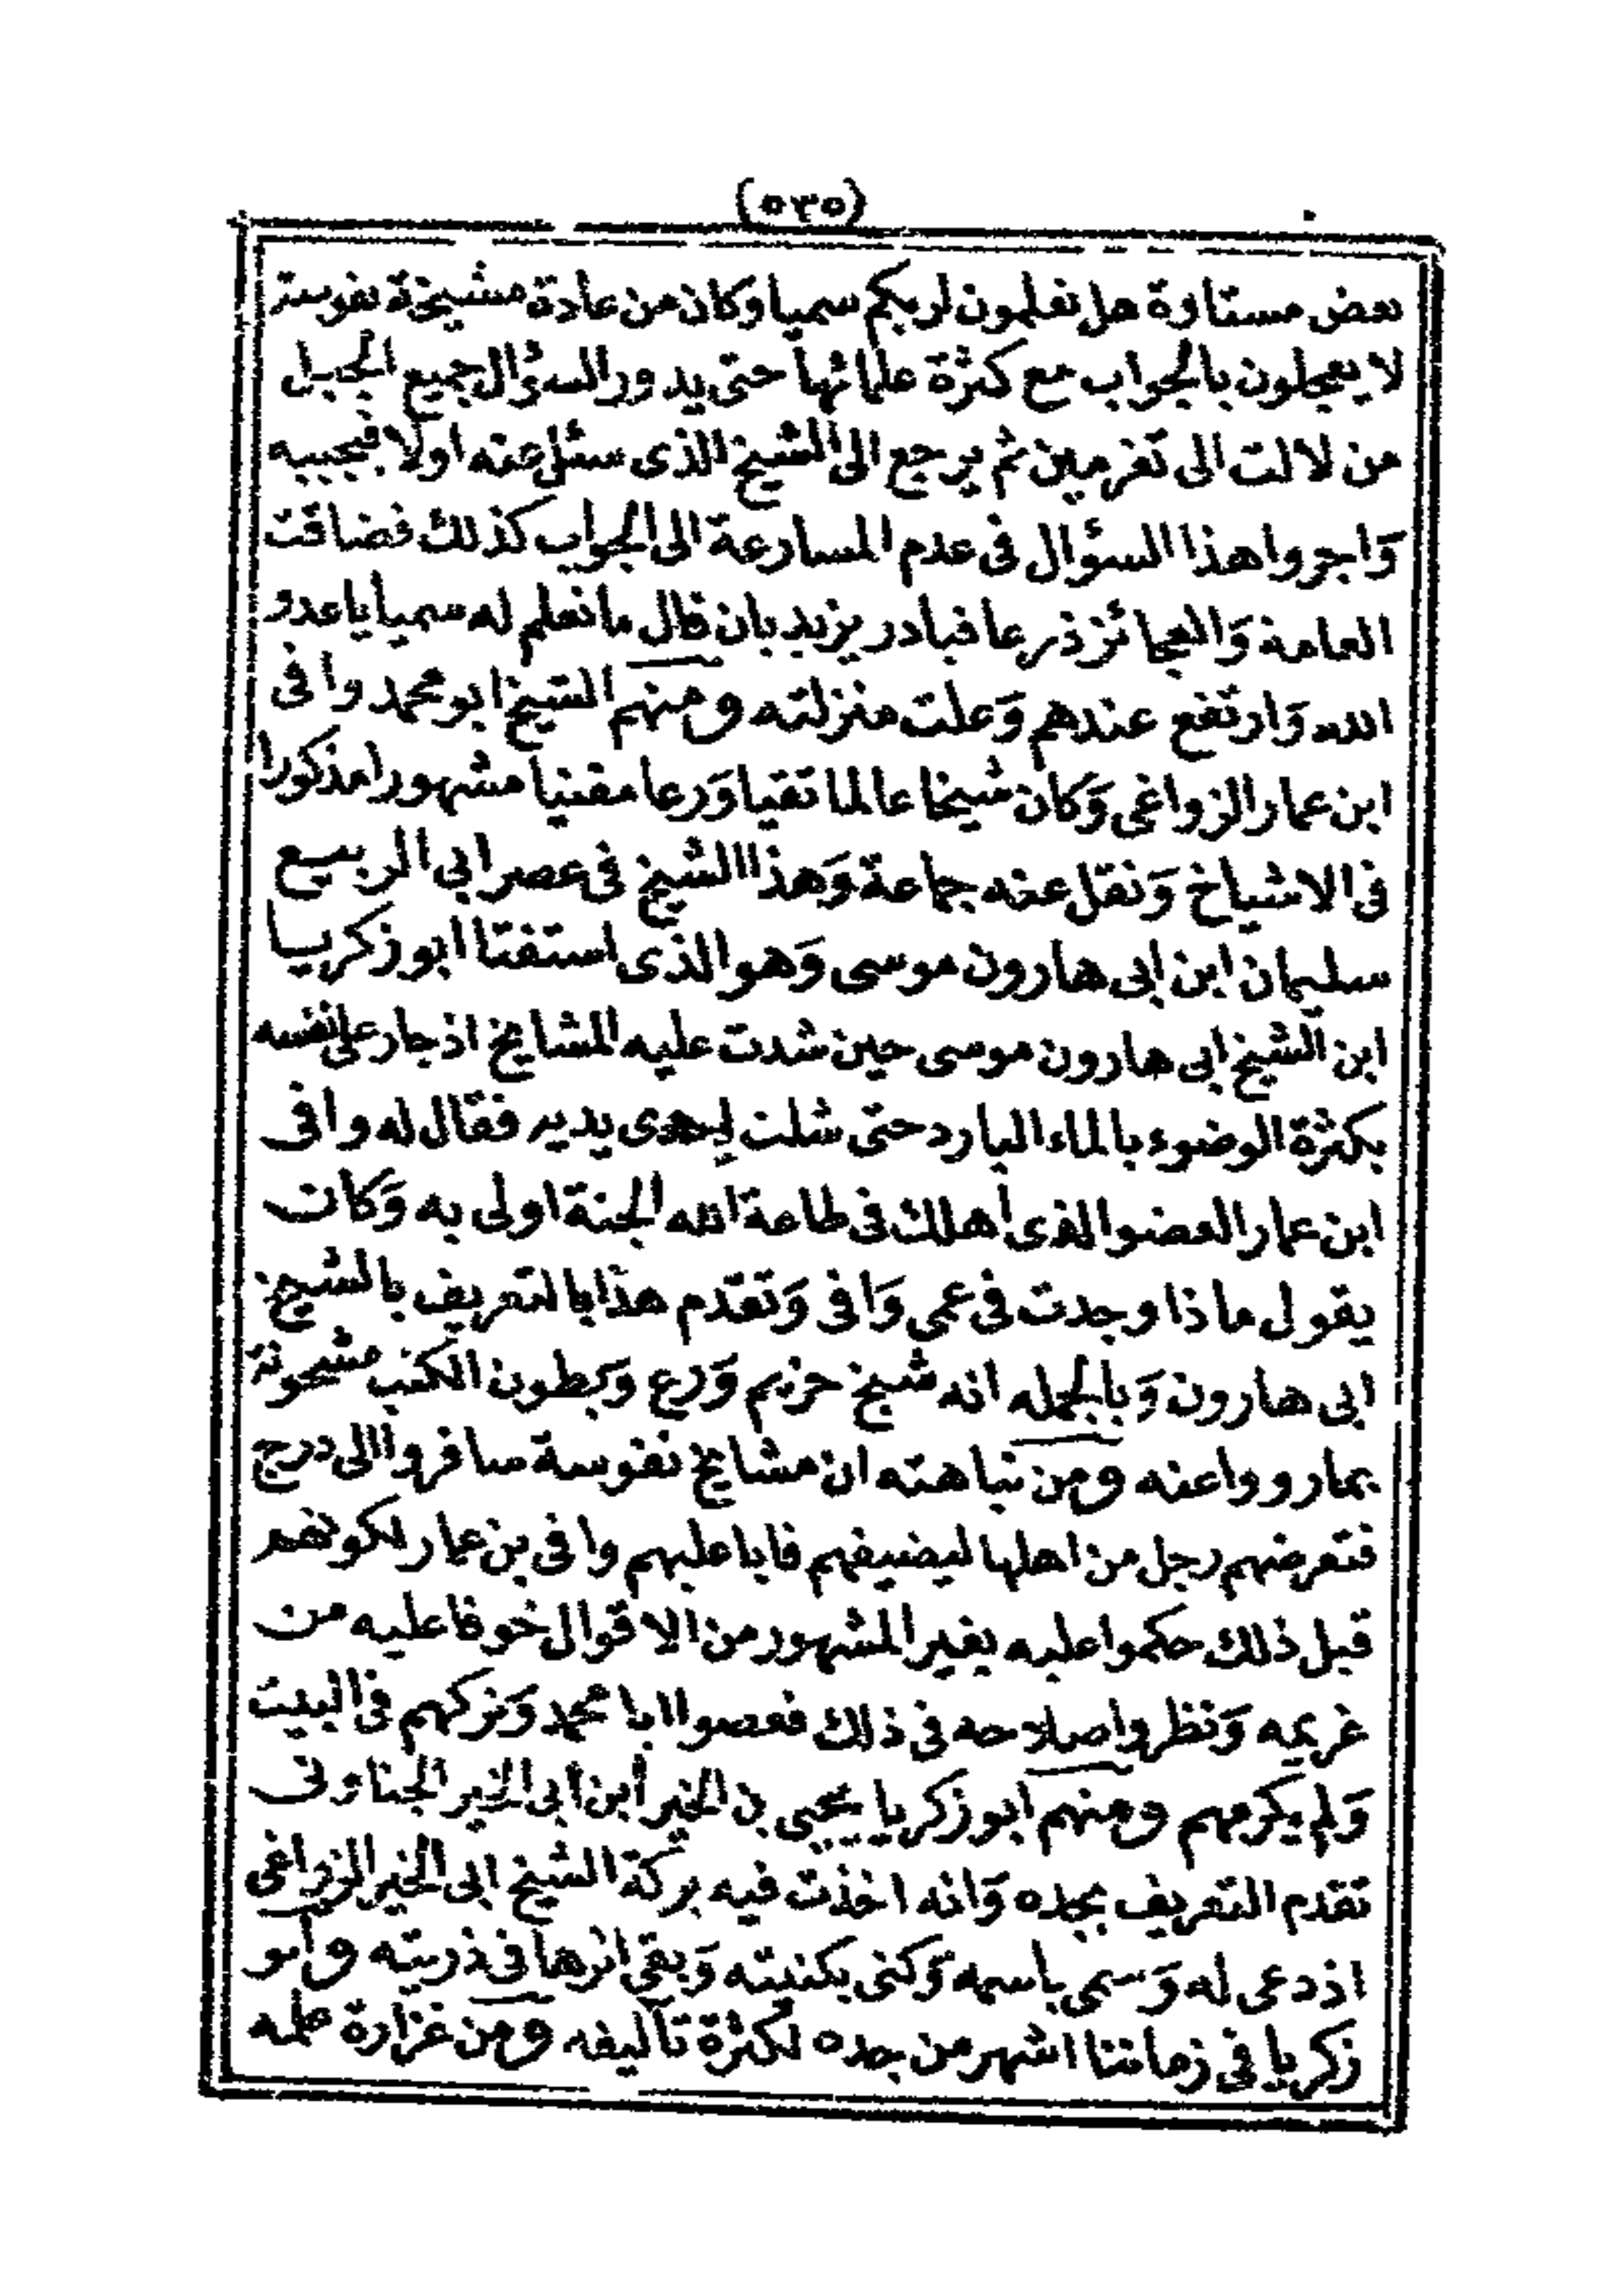 (٥٣٥)
بعض مستاوة هل تعلمون لربكم سميا وكان من عادة مشيخة نفوسة
لا يعجلون بالجواب مع كثرة علمائها حتى يدور السؤال جميع الجبل
من لالت الى تغرمين ثم يرجع الى الشيخ الذى سئل عنه اولا فيجيبه
وَاجروا هذا السؤال فى عدم المسارعة الى الجواب كذلك فضاقت
العامة وَالعجائز ذرعا فبادر يزيد بان قال ما نعلم له سميا يا عدو
الله وَارتفع عندهم وَعلت منزلته ومنهم الشيخ ابو محمد وافى
ابن عمار الزواغى وَكان شيخا عالما تقيا وَرعا مفتيا مشهورا مذكورا
فى الاشياخ وَنقل عنه جماعة وَهذا الشيخ فى عصر ابى الربيع
سليمان ابن ابى هارون موسى وَهو الذى استفتا ابو زكريا
ابن الشيخ ابى هارون موسى حين شدت عليه المشايخ اذ جار على نفسه
بكثرة الوضوء بالماء البارد حتى شلت احدى يديه فقال له وافى
ابن عمار العضو الذى اهلك فى طاعة الله الجنة اولى به وَكان
يقول ماذا وجدت فى عمى وَافى وَتقدم هذا بالتعريف بالشيخ
ابى هارون وَبالجمله انه شيخ حزيم وَرع وَبطون الكتب مشحونة
بما رووا عنه ومن نباهته ان مشايخ نفوسة سافروا الى درج
فتعرضهم رجل من اهلها ليضيفهم فابا عليهم وافى بن عمار لكونهم
قبل ذلك حكموا عليه بغير المشهور من الاقوال خوفا عليه من
غريمه وَنظروا صلاحه فى ذلك فعصوا ابا محمد وَتركهم فى البيت
وَلم يكرمهم ومنهم ابو زكريا يحيى بن الخير ابن ابى الخير الجناونى
تقدم التعريف بجده وَانه اخذت فيه بركة الشيخ ابى الخير الزواغى
اذ دعى له وَسمى باسمه وَكنى بكنيته وَبقى اثرها فى ذريته وابو
زكريا فى زماننا اشهر من جده لكثرة تآليفه ومن غزارة علمه